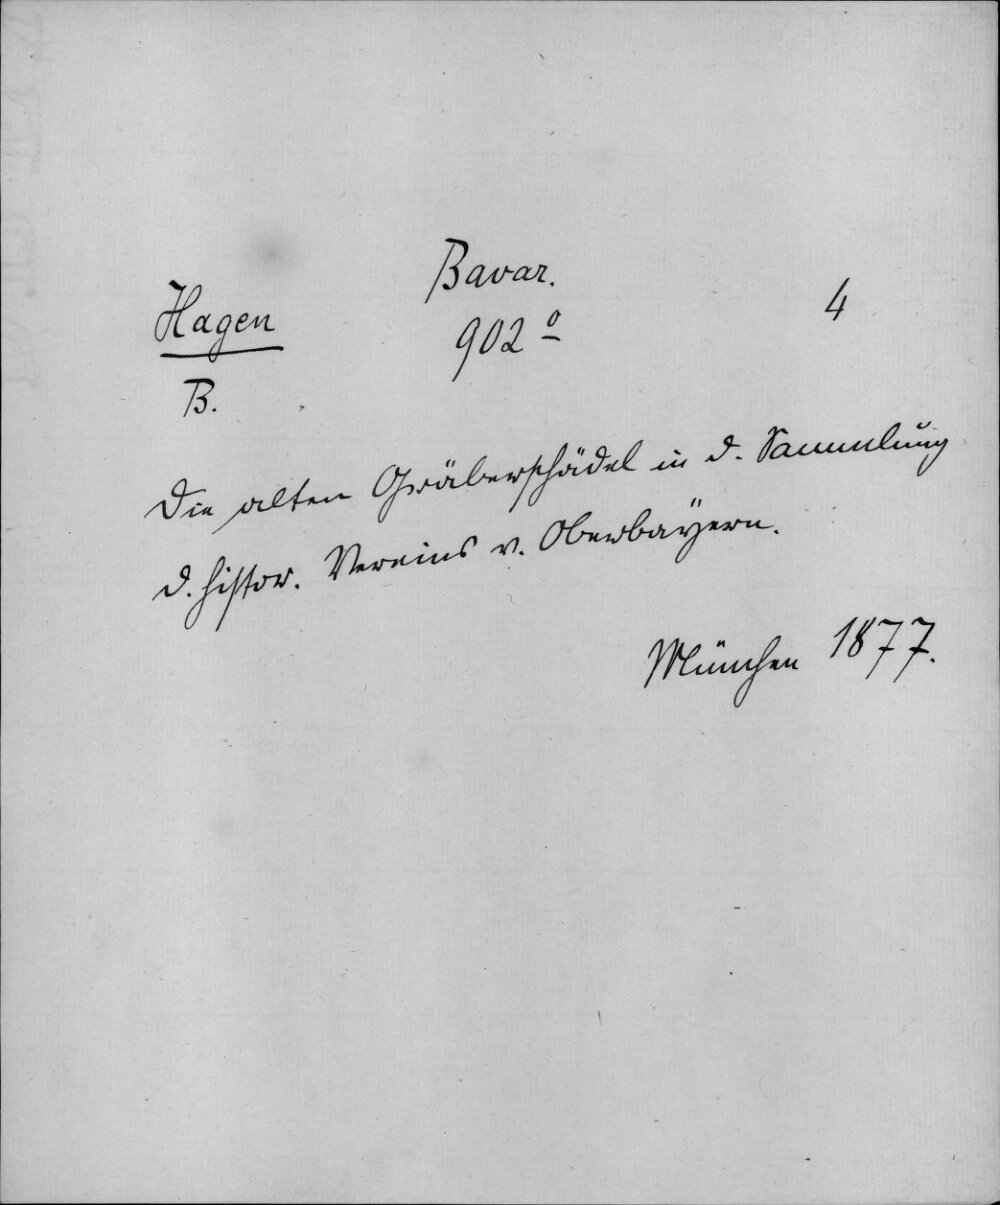 Bavar.
Hagen
902 o
4
B.
Die alten Gräberschädel in d. Sammlung
d. histor. Vereins v. Oberbayern.
München 1877.